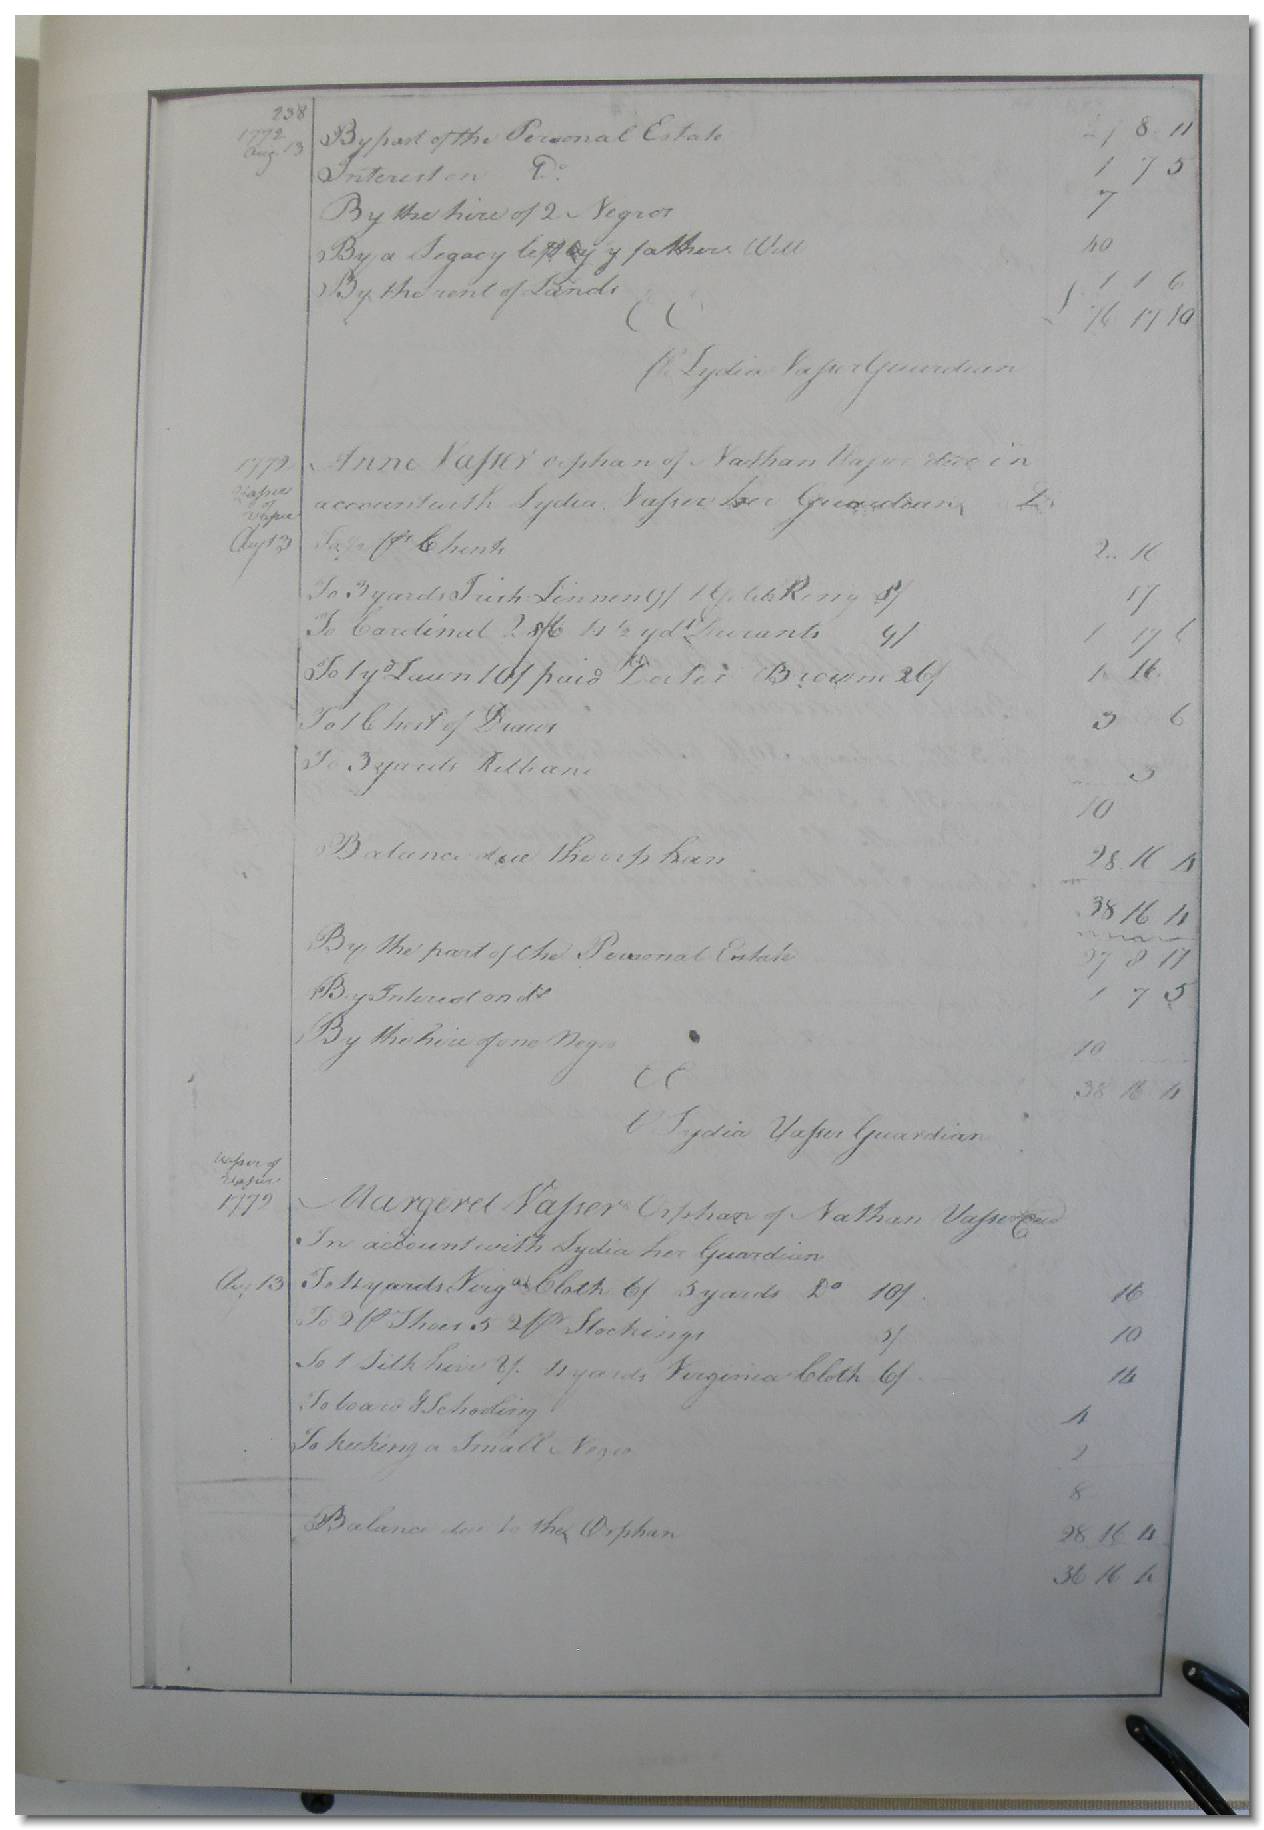 238
1772 Aug. 13 By part of the Personal Estate 27 8 11
Interest on Do 1 7 5
By the hire of 2 Negros 7
By a Legacy left by y fathers Will 40
By the rent of Lands 1 1 6
76 17 10
Lydia Vasser Guardian
1772 Anne Vasser orphan of Nathan Vasser in
Vasser of Vasser account with Lydia Vasser her Guardian Dr
Aug 13 2 16
To 3 yards Irish Linnen 9/ 1 Ring 8/ 17
To Cardinal 28/6 4 1/2 yds Durants 9/ 1 17 6
To 1 yd Lawn 10/ paid Docter Brown 26/ 1 16
To 1 Chest of Draws 3 6
To 3 yards Ribbans 3
10
Balance due the orphan 28 16 4
38 16 4
By the part of the Personal Estate 27 8 11
By Interest on do 1 7 5
By the hire of one Negro 10
38 16 4
Lydia Vasser Guardian
Vasser of Vasser
1772 Margeret Vasser Orphan of Nathan Vasser Decd
In account with Lydia her Guardian
Aug 13 To 4 yards Virga Cloth 6/ 5 yards Do 10/ 16
To 2 pr Shoes 5 2 pr Stockings 5/ 10
To 1 Silk 8/ 4 yards Virginia Cloth 6/ 14
To board & Schooling 4
To keeking a Small Negro 2
8
Balance due to the Orphan 28 16 4
36 16 4